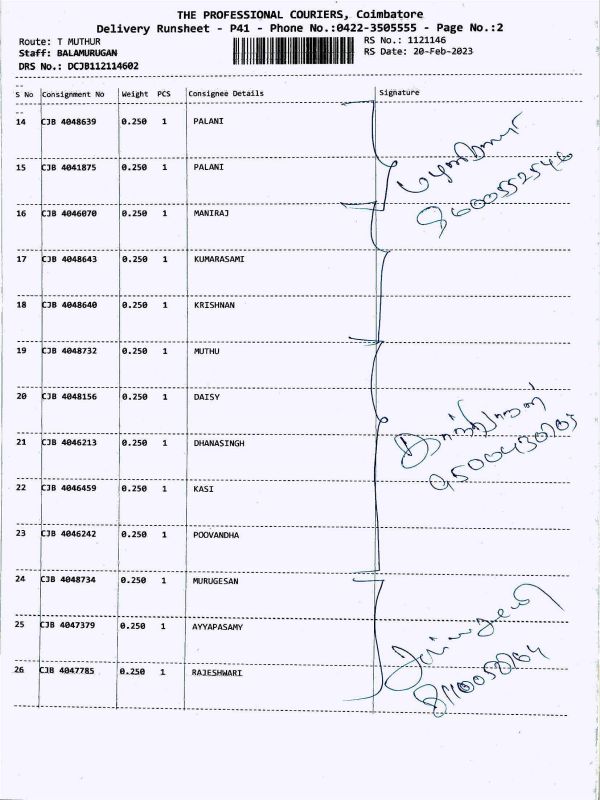 THE PROFESSIONAL COURIERS, Coimbatore
Delivery Runsheet - P41 - Phone No.:0422-3505555 - Page No.:2
Route: T MUTHUR RS No.: 1121146
Staff: BALAMURUGAN RS Date: 20-Feb-2023
DRS No.: DCJB112114602
S No Consignment No Weight PCS Consignee Details Signature
14 CJB 4048639 0.250 1 PALANI
15 CJB 4041875 0.250 1 PALANI
9600552546
16 CJB 4046070 0.250 1 MANIRAJ
17 CJB 4048643 0.250 1 KUMARASAMI
18 CJB 4048640 0.250 1 KRISHNAN
19 CJB 4048732 0.250 1 MUTHU
20 CJB 4048156 0.250 1 DAISY
21 CJB 4046213 0.250 1 DHANASINGH
22 CJB 4046459 0.250 1 KASI
23 CJB 4046242 0.250 1 POOVANDHA
24 CJB 4048734 0.250 1 MURUGESAN
25 CJB 4047379 0.250 1 AYYAPASAMY
26 CJB 4047785 0.250 1 RAJESHWARI